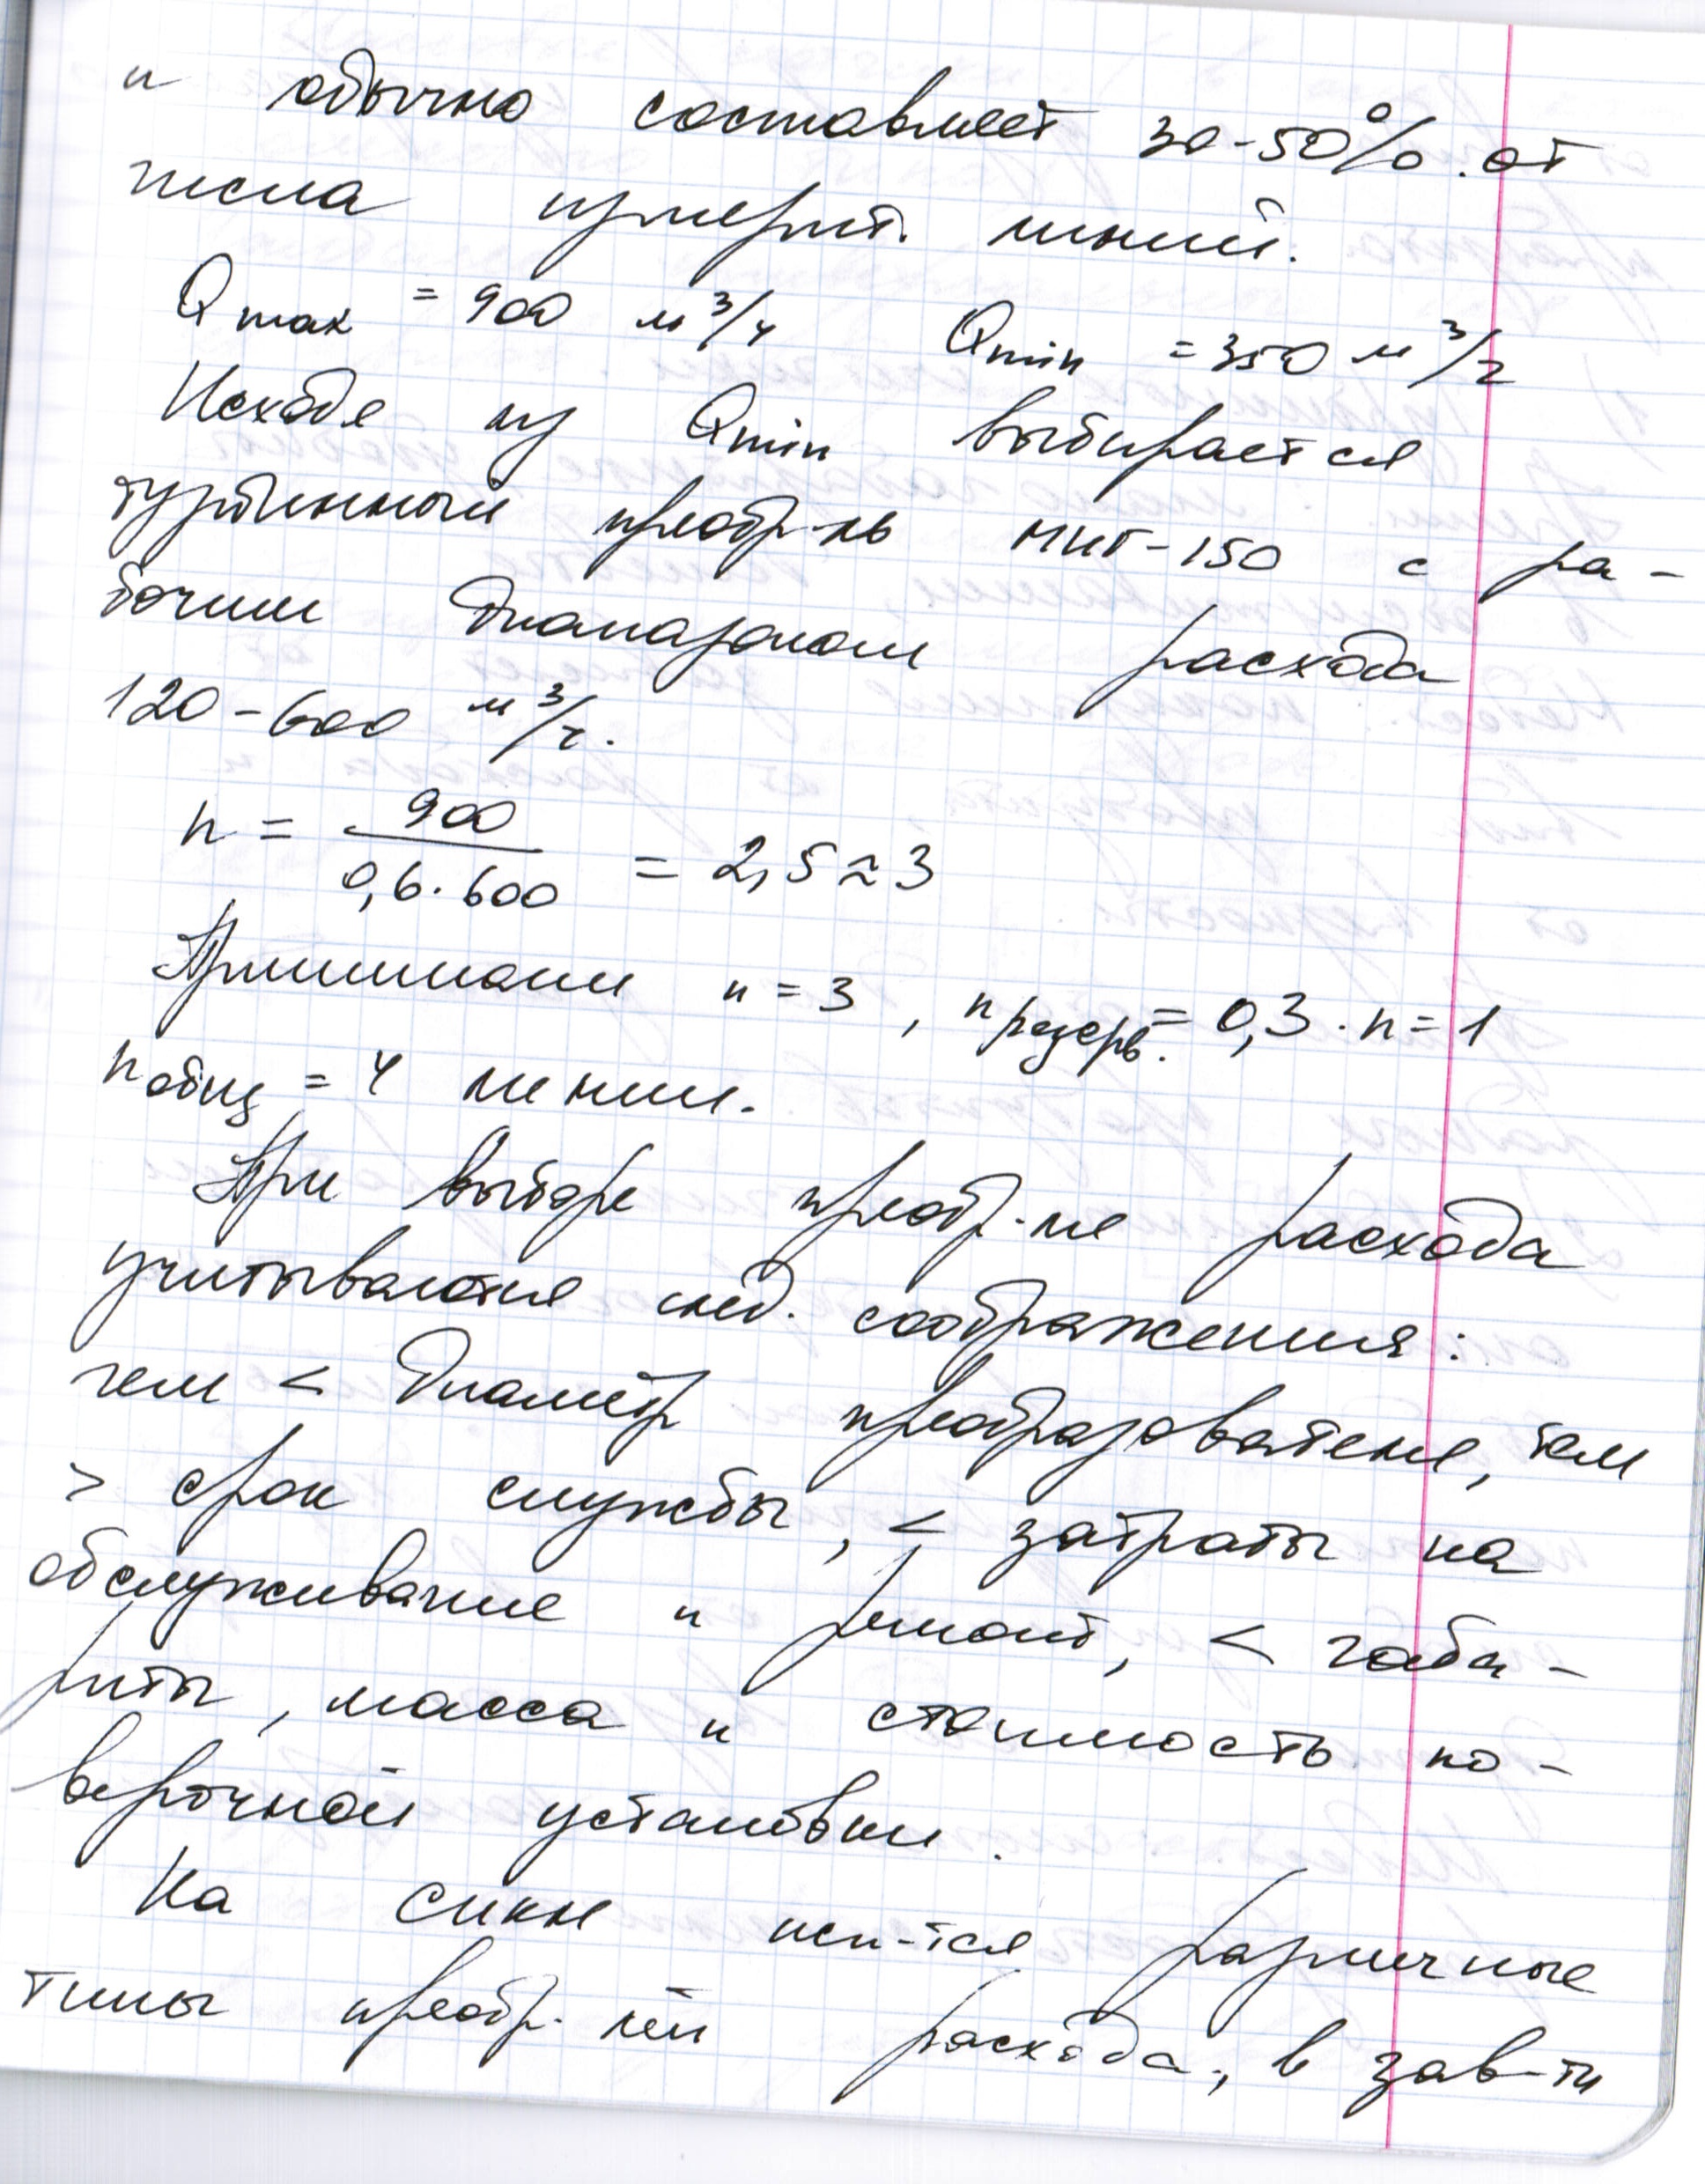 и обычно составляет 30-50% от
числа измерит. линий.
Qmax = 900 м³/ч Qmin = 350 м³/ч
Исходя из Qmin выбирается
турбинный преобр-ль МИГ-150 с ра-
бочим диапазоном расхода
120-600 м³/ч.
n = 900 / 0,6·600 = 2,5 ≈ 3
Принимаем n = 3, nрезерв. = 0,3·n = 1
nобщ = 4 линии.
При выборе преобр-ля расхода
учитываются след. соображения:
чем < диаметр преобразователя, тем
> срок службы, < затраты на
обслуживание и ремонт, < габа-
риты, масса и стоимость по-
верочной установки.
На СИКН исп-тся различные
типы преобр-лей расхода, в зав-ти